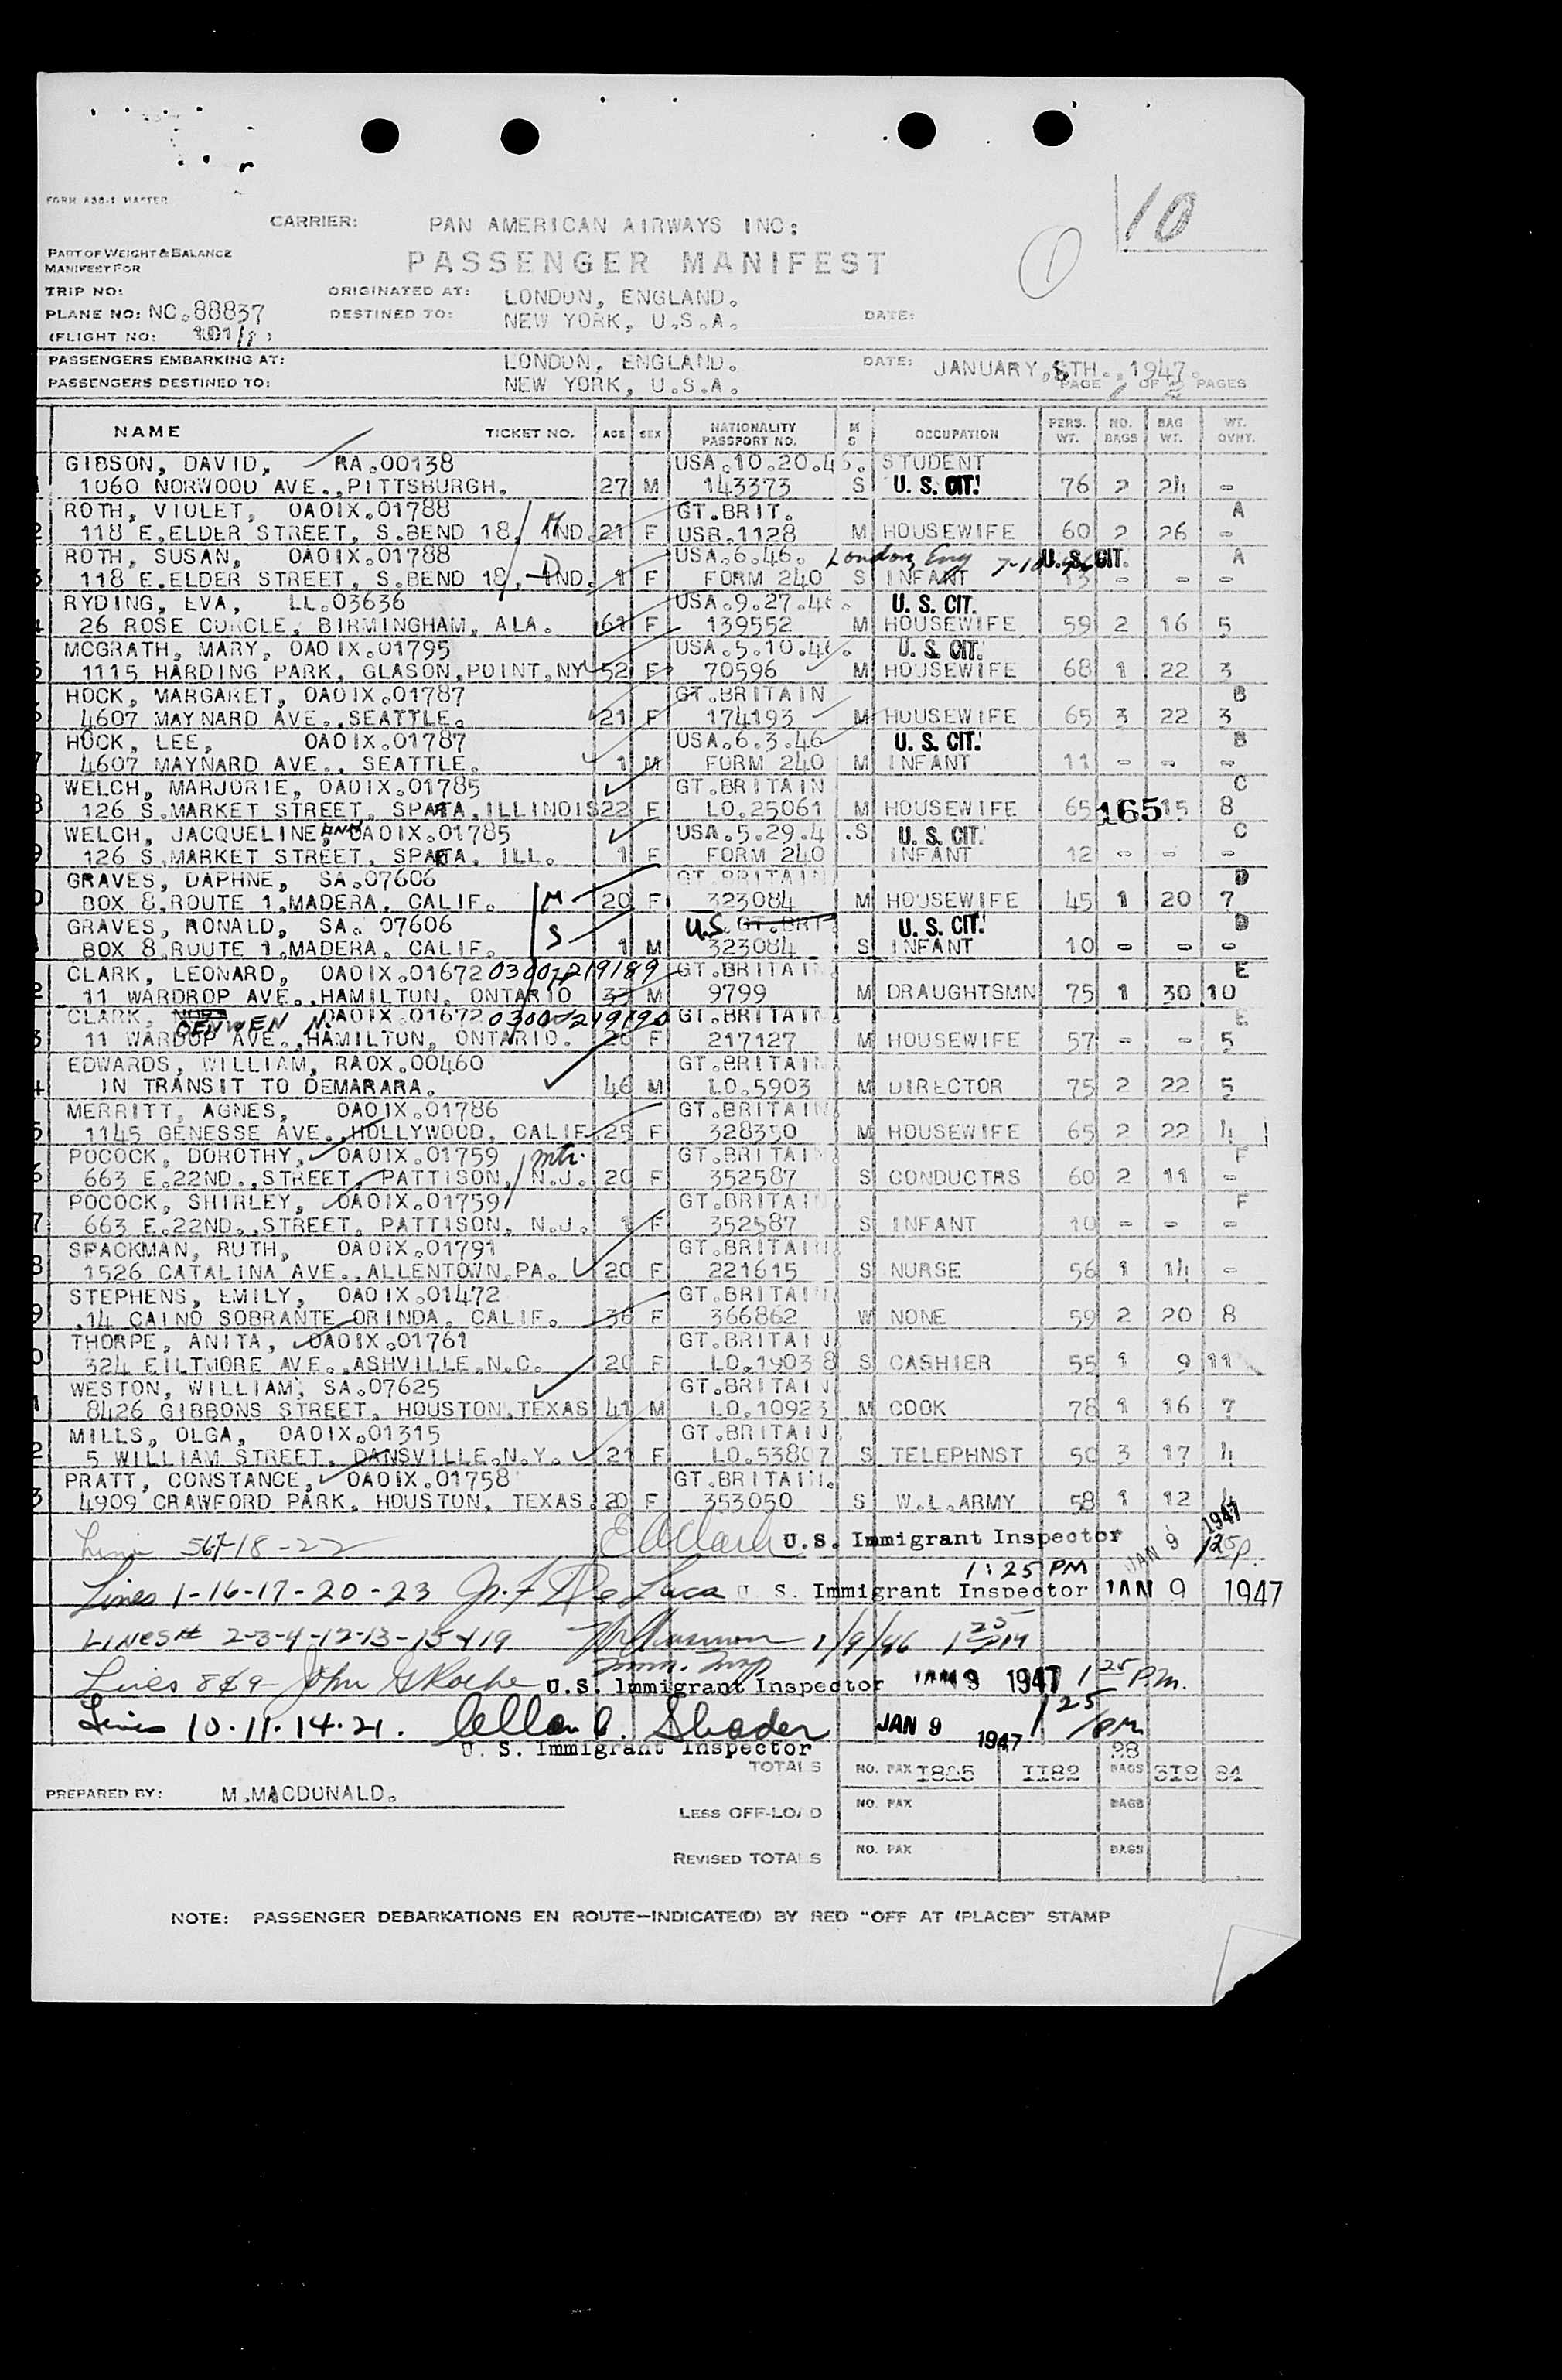 FORM A38-1 MASTER
10
CARRIER: PAN AMERICAN AIRWAYS INC:
PART OF WEIGHT & BALANCE
MANIFEST FOR
PASSENGER MANIFEST
1
TRIP NO: ORIGINATED AT: LONDON, ENGLAND.
PLANE NO: NC.88837 DESTINED TO: NEW YORK, U.S.A. DATE:
(FLIGHT NO: 101/ )
PASSENGERS EMBARKING AT: LONDON, ENGLAND. DATE: JANUARY, 8TH., 1947.
PASSENGERS DESTINED TO: NEW YORK, U.S.A. PAGE 1 OF 2 PAGES
NAME TICKET NO. AGE SEX NATIONALITY PASSPORT NO. M S OCCUPATION PERS. WT. NO. BAGS BAG WT. WT. OVHT.
GIBSON, DAVID, RA.00138 USA.10.20.46. STUDENT
1060 NORWOOD AVE.,PITTSBURGH. 27 M 143373 S U. S. CIT. 76 2 24 -
ROTH, VIOLET, OAOIX.01788 GT.BRIT. A
2 118 E.ELDER STREET, S.BEND 18, IND. 21 F USB.1128 M HOUSEWIFE 60 2 26 -
ROTH, SUSAN, OAOIX.01788 USA.6.46. London, Eng U. S. CIT. A
3 118 E.ELDER STREET, S.BEND 18, IND. 1 F FORM 240 S INFANT 13 - - -
RYDING, EVA, LL.03636 USA.9.27.46. U. S. CIT.
4 26 ROSE CURCLE, BIRMINGHAM, ALA. 61 F 139552 M HOUSEWIFE 59 2 16 5
MCGRATH, MARY, OAOIX.01795 USA.5.10.46. U. S. CIT.
5 1115 HARDING PARK, GLASON,POINT.NY 52 F 70596 M HOUSEWIFE 68 1 22 3
HOCK, MARGARET, OAOIX.01787 GT.BRITAIN B
6 4607 MAYNARD AVE.,SEATTLE. 21 F 174193 M HOUSEWIFE 65 3 22 3
HOCK, LEE, OAOIX.01787 USA.6.3.46 U. S. CIT. B
7 4607 MAYNARD AVE., SEATTLE. 1 M FORM 240 M INFANT 11 - - -
WELCH, MARJORIE, OAOIX.01785 GT.BRITAIN C
8 126 S.MARKET STREET, SPARTA.ILLINOIS 22 F LO.25061 M HOUSEWIFE 65 165 15 8
WELCH, JACQUELINE, ANN OAOIX.01785 USA.5.29.4 .S U. S. CIT. C
9 126 S.MARKET STREET, SPARTA, ILL. 1 F FORM 240 INFANT 12 - - -
GRAVES, DAPHNE, SA.07606 GT.BRITAIN D
0 BOX 8,ROUTE 1,MADERA, CALIF. M 20 F 323084 M HOUSEWIFE 45 1 20 7
GRAVES, RONALD, SA. 07606 U.S. GT.BRIT U. S. CIT. D
BOX 8,ROUTE 1,MADERA, CALIF. S 1 M 323084 S INFANT 10 - - -
CLARK, LEONARD, OAOIX.01672 0300/219189 GT.BRITAIN E
2 11 WARDROP AVE.,HAMILTON, ONTARIO 33 M 9799 M DRAUGHTSMN 75 1 30 10
CLARK, OENWEN N. OAOIX.01672 0300/219190 GT.BRITAIN E
3 11 WARDOP AVE.,HAMILTON, ONTARIO. 26 F 217127 M HOUSEWIFE 57 - - 5
EDWARDS, WILLIAM, RAOX.00460 GT.BRITAIN
4 IN TRANSIT TO DEMARARA. 46 M LO.5903 M DIRECTOR 75 2 22 5
MERRITT, AGNES, OAOIX.01786 GT.BRITAIN
5 1145 GENESSE AVE.,HOLLYWOOD, CALIF. 25 F 328350 M HOUSEWIFE 65 2 22 4
POCOCK, DOROTHY, OAOIX.01759 mtr. GT.BRITAIN F
6 663 E.22ND.,STREET, PATTISON, N.J. 20 F 352587 S CONDUCTRS 60 2 11 -
POCOCK, SHIRLEY, OAOIX.01759 GT.BRITAIN F
7 663 E.22ND.,STREET, PATTISON, N.J. 1 F 352587 S INFANT 10 - - -
SPACKMAN, RUTH, OAOIX.01791 GT.BRITAIN
8 1526 CATALINA AVE.,ALLENTOWN,PA. 20 F 221615 S NURSE 56 1 14 -
STEPHENS, EMILY, OAOIX.01472 GT.BRITAIN
9 .14 CAINO SOBRANTE ORINDA, CALIF. 36 F 366862 W NONE 59 2 20 8
THORPE, ANITA, OAOIX.01761 GT.BRITAIN
0 324 EILTMORE AVE.,ASHVILLE,N.C. 20 F LO.19038 S CASHIER 55 1 9 11
WESTON, WILLIAM, SA.07625 GT.BRITAIN
1 8426 GIBBONS STREET, HOUSTON,TEXAS 41 M LO.10923 M COOK 78 1 16 7
MILLS, OLGA, OAOIX.01315 GT.BRITAIN
2 5 WILLIAM STREET, DANSVILLE.N.Y. 21 F LO.53807 S TELEPHNST 50 3 17 4
PRATT, CONSTANCE, OAOIX.01758 GT.BRITAIN.
3 4909 CRAWFORD PARK, HOUSTON, TEXAS. 20 F 353050 S W.L.ARMY 58 1 12 4
Line 567-18-22 U.S. Immigrant Inspector JAN 9 1947 125p.
1:25 PM
Lines 1-16-17-20-23 De Luca U. S. Immigrant Inspector JAN 9 1947
LINES 2-3-4-12-13-15 & 19 1/9/46 1 25 PM
Imm. Insp
Lines 8 & 9 John G Roche U.S. Immigrant Inspector JAN 9 1947 1 25 P.M.
Lines 10.11.14.21. Allan C. Shader JAN 9 1947 1 25 PM
U. S. Immigrant Inspector
28
TOTALS NO. PAX 1182 BAGS 84
PREPARED BY: M.MACDONALD.
LESS OFF-LOAD NO. PAX BAGS
REVISED TOTALS NO. PAX BAGS
NOTE: PASSENGER DEBARKATIONS EN ROUTE—INDICATE(D) BY RED "OFF AT (PLACE)" STAMP